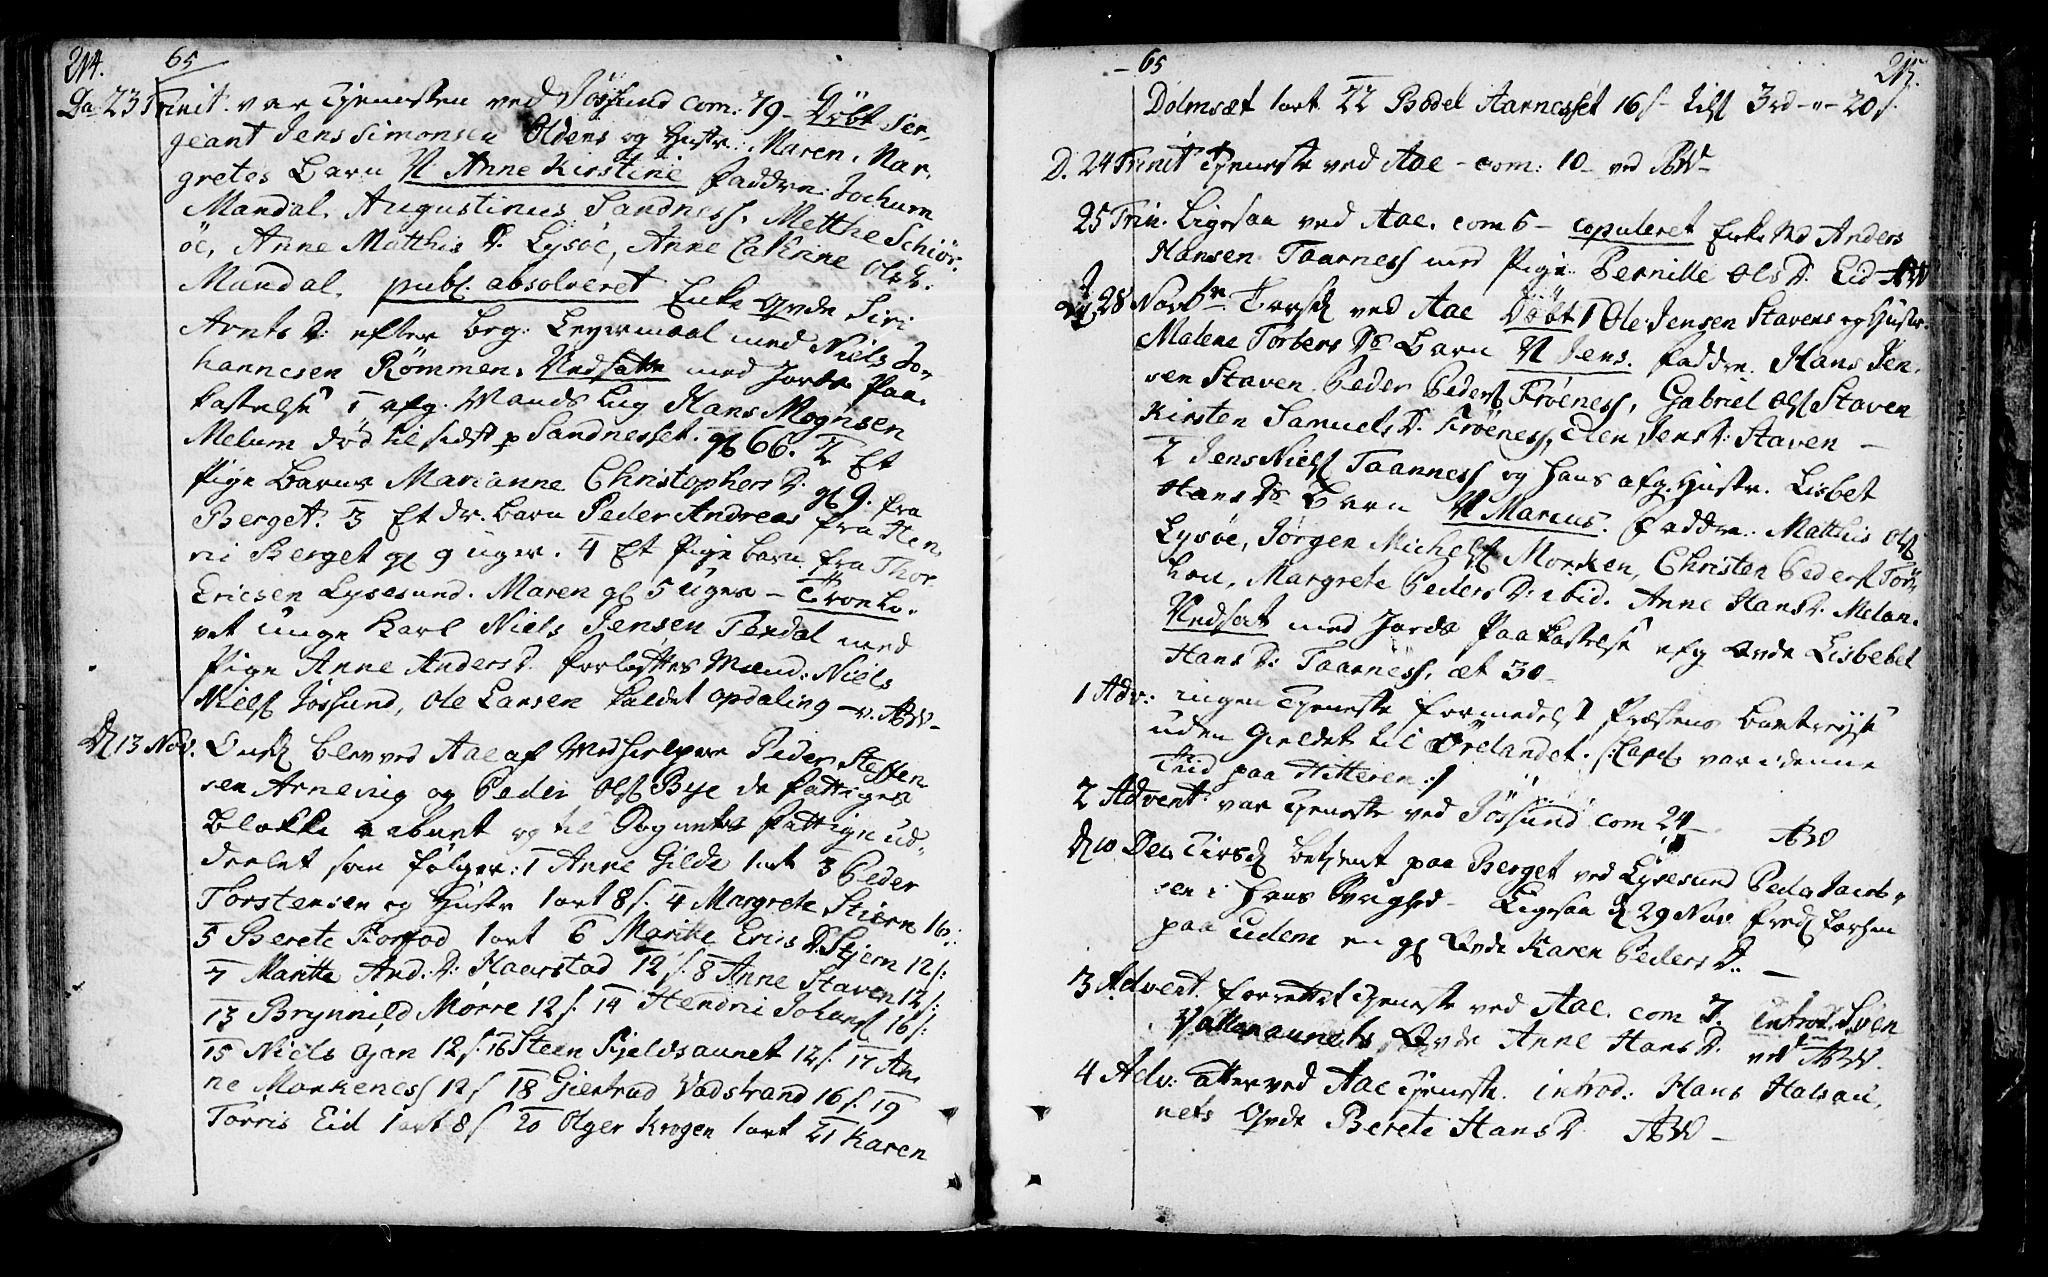 214. 65
Da: 23 Trinit. var Tjenesten ved Jössund com: 79 - Döbt Ser,
geant Jens Simonsen Oldens og Hustr: Maren, Mar,
gretes Barn N Anne Kirstine Faddre: Jochum
Mandal, Augustinus Sandness, Metthe Schiör,
öe, Anne Matthis D. Lysöe, Anne Catrine Ols D.
Mandal, publ. absolveret Enke Qvde Siri
Arnts D: efter beg: Leyermaal med Niels Jo,
hannesen Römmen. Nedsatte med Jords Paa,
kastelse 1 afg. Mands Lig Hans Mognsen
Melum död til sidst p Sandnesset. gl 66. 2 Et
Pige Barns Marianne Christophers D. gl 9. fra
Berget. 3 Et dr. Barn Peder Andreas fra Hen,
ric Berget gl 9 uger. 4 Et Pige barn fra Thor
Ericsen Lysesund. Maren gl 5 Uger - Trolo,
vet unge Karl Niels Jensen Terdal med
Pige Anne Anders D. Forlofttes Mænd: Niels
Niels Jössund, Ole Larsen kaldet Opdaling - v. ABW -
D 13 Nov. Onsd blev ved Aae af Medhielpere Peder Steffen
sen Arnevig og Peder Ols Bye de Fattiges
Blokke aabnet og til Sognets Fattige ud,
deelet som fölger: 1 Anne Gilde 1 ort 3 Peder
Torstensen og Hustr 1 ort 8 s. 4 Margrete Stiern 16:
5 Berete Forfod 1 ort 6 Maritte Erics D. Stjern 12 s:
7 Maritte And: D: Haarstad 12 s. 8 Anne Staven 12 s:
13 Brynnild Mörre 12 s. 14 Hendric Johans 16 s:
15 Niels Ojan 12 s. 16 Steen Fjeldsaunet 12 s. 17 An,
ne Markeness 12 s 18 Giertrud Vadstrand 16 s. 19
Torris Eid 1 ort 8 s 20 Olger Krogen 1 ort 21 Karen
65 215.
Dolmsæt 1 ort 22 Bodel Aarnesset 16 s - Tils 3 rd - " - 20 s.
D. 24 Trinit Tjeneste ved Aae - com: 10 - ved ABW -
25 Trin. Ligesaa ved Aae. com 5 - copuleret Enke Md Anders
Hansen Taarness med Pige Pernille Ols D: Eid - ABW
D 28 Novbr. Torsd ved Aae Döbt 1 Ole Jensen Stavens og Hustr.
Malene Torbers Ds Barn N Jens. Faddre. Hans Jen,
sen Staven Peder Peders Fröeness, Gabriel Ols Staven
Kirsten Samuels D. Fröeness, Elen Jens D: Staven -
2 Jens Niels Taarness og hans afg. Hustr. Lisbet
Hans Ds Barn N Marcus. Faddre: Matthis Ols
Lysöe, Jörgen Michels Morken, Christen Peders Tör,
hou, Margrete Peders D: ibid. Anne Hans D. Melan.
Nedsat med Jords Paakastelse afg Qvde Lisbebet
Hans D: Taarness, æt 30 -
1 Adv: ingen Tjeneste formedelst Præsens bortreyse
uden Gieldet til Örelandet. /: Capel. var i denne
Tiid paa Hitteren :/
2 Advent. var Tjeneste ved Jössund com 24 - ABW
D 10 Dec. Tirsd betjent paa Berget ved Lysesund Peder Jacob,
sen i hans Svaghed - Ligesaa D 29 Nov. Fred forhen
paa Udem en gl Qvde Karen Peders D. -
3 Advent. forrettet Tjeneste ved Aae. com 7. introd. Sven
Vallersaunets Qvde Anne Hans D. ved ABW.
4 Adv: atter ved Aae Tjeneste. introd: Hans Halsau,
nets Qvde Berete Hans D ABW -